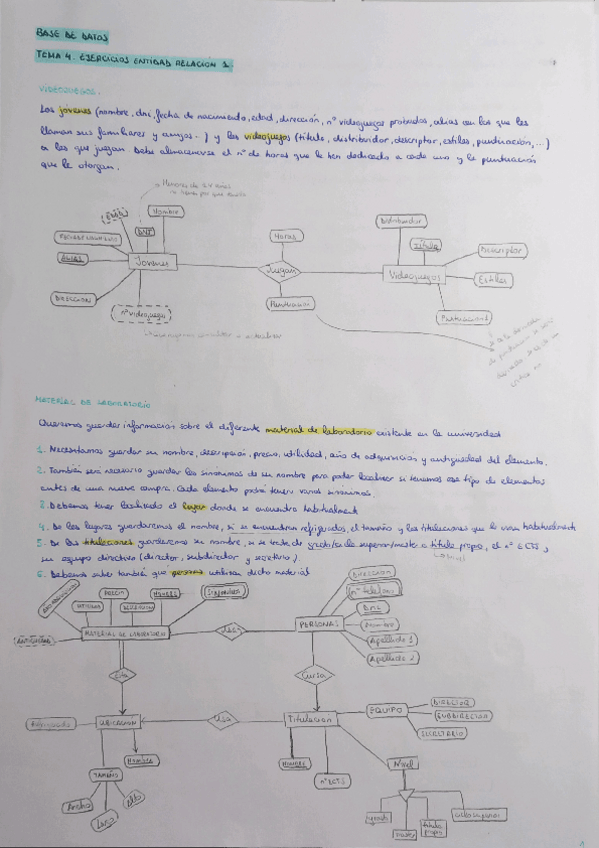 BASE DE DATOS
TEMA 4. EJERCICIOS ENTIDAD RELACIÓN 1.
VIDEOJUEGOS.
Los jóvenes (nombre, dni, fecha de nacimiento, edad, dirección, nº videojuegos probados, alias con los que les
llaman sus familiares y amigos...) y los videojuegos (título, distribuidor, descriptor, estilos, puntuación, ...)
a los que juegan. Debe almacenarse el nº de horas que le han dedicado a cada uno y la puntuación
que le otorgan.
Edad
DNI
Nombre
Alias
Jovenes
Direccion
nº videojuego
Horas
Juegan
Puntuacion
Distribuidor
Título
Descriptor
Videojuegos
Estilos
Puntuacion
MATERIAL DE LABORATORIO
Queremos guardar información sobre el diferente material de laboratorio existente en la universidad
1. Necesitamos guardar su nombre, descripción, precio, utilidad, año de adquisición y antigüedad del elemento.
2. También será necesario guardar los sinonimos de su nombre para poder localizar si tenemos ese tipo de elementos
antes de una nueva compra. Cada elemento podrá tener varios sinonimos.
3. Debemos tener localizado el lugar donde se encuentra habitualmente
4. De los lugares guardaremos el nombre, si se encuentran refrigerados, el tamaño y las titulaciones que lo usan habitualmente
5. De las titulaciones guardaremos su nombre, si se trata de grado/ciclo superior/master o título propio, el nº ECTS y
su equipo directivo (director, subdirector y secretario).
6. Debemos saber también que personas utilizan dicho material
PRECIO
NOMBRE
MATERIAL DE LABORATORIO
Usa
DIRECCION
nº telefono
DNI
Nombre
Apellido 1
Apellido 2
PERSONAS
Cursa
UBICACION
Usa
Titulacion
EQUIPO
DIRECTOR
SUBDIRECTOR
SECRETARIO
Nombre
TAMAÑO
Ancho
Largo
Alto
NOMBRE
nº ECTS
Nivel
grado
master
título propio
ciclo superior